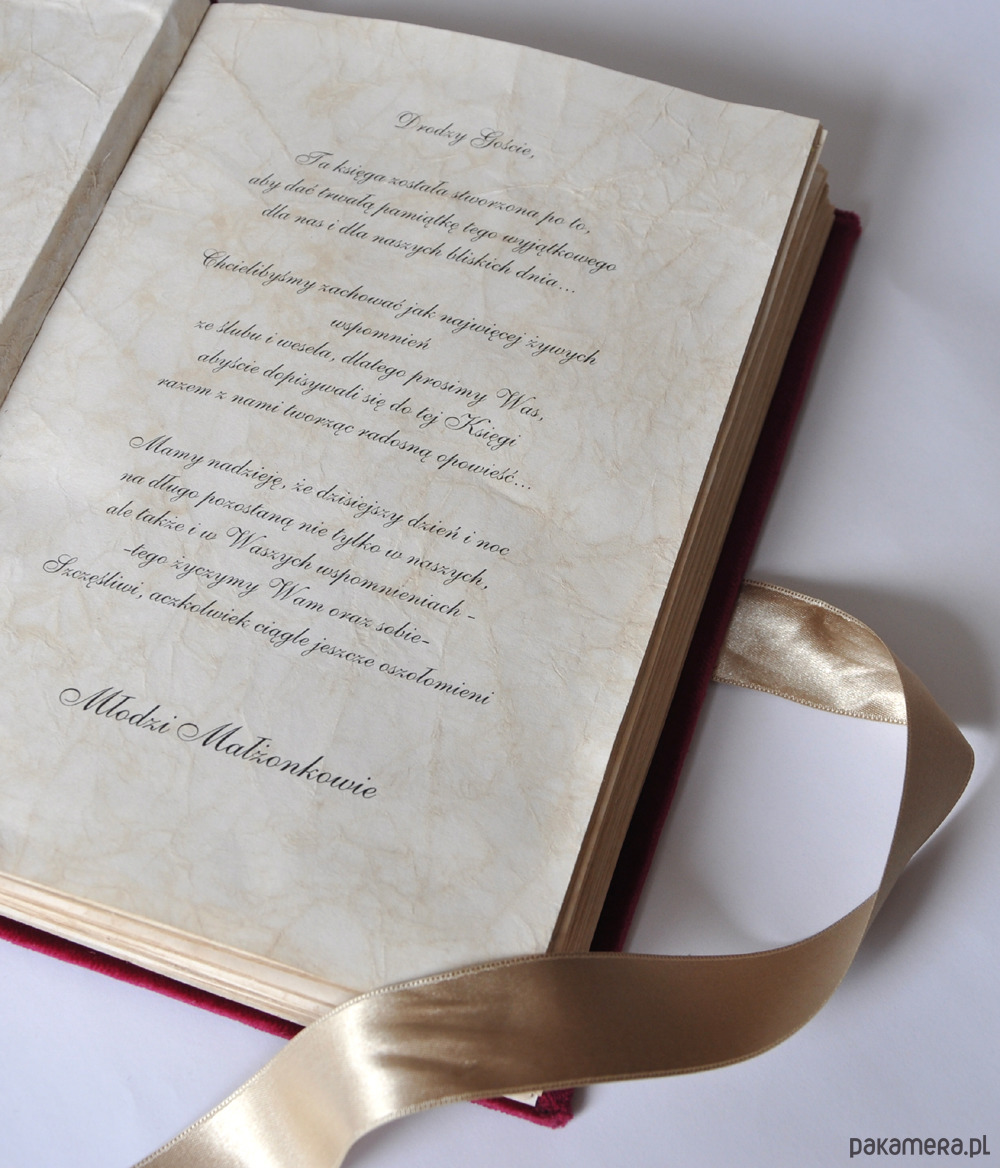 Drodzy Goście,
Ta księga została stworzona po to,
aby dać trwałą pamiątkę tego wyjątkowego
dla nas i dla naszych bliskich dnia...
Chcielibyśmy zachować jak najwięcej żywych
wspomnień
ze ślubu i wesela, dlatego prosimy Was,
abyście dopisywali się do tej Księgi
razem z nami tworząc radosną opowieść...
Mamy nadzieję, że dzisiejszy dzień i noc
na długo pozostaną nie tylko w naszych,
ale także i w Waszych wspomnieniach -
-tego życzymy Wam oraz sobie-
Szczęśliwi, aczkolwiek ciągle jeszcze oszołomieni
Młodzi Małżonkowie
pakamera.pl